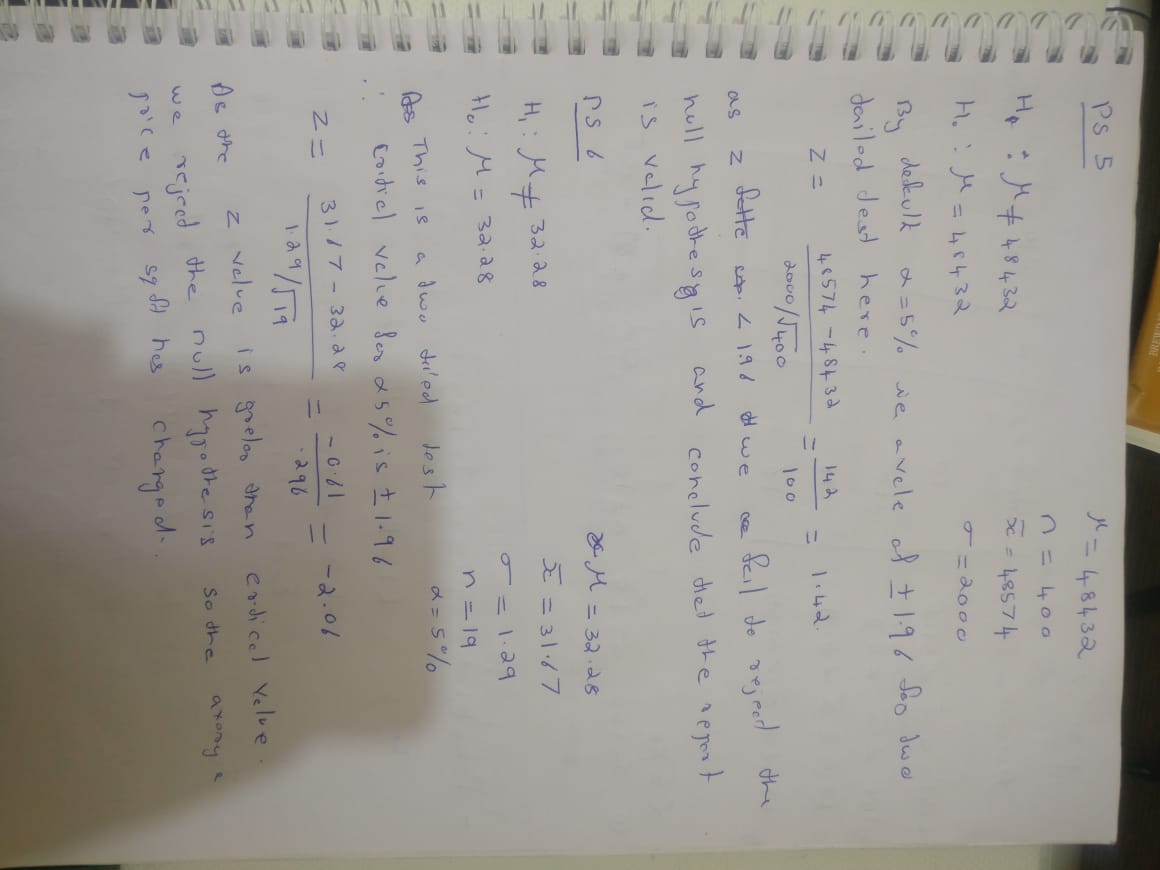 PS 5
μ = 48432
n = 400
H₁ : μ ≠ 48432
x̄ = 48574
H₀ : μ = 48432
σ = 2000
By default α = 5% ie a vale of ± 1.96 for two
tailed test here.
Z = 48574 - 48432 / 2000/√400 = 142 / 100 = 1.42.
as z < 1.96 we fail to reject the
null hypothesis and conclude that the report
is valid.
PS 6
μ = 32.28
H₁ : μ ≠ 32.28
x̄ = 31.67
σ = 1.29
H₀ : μ = 32.28
n = 19
This is a two tiled test
α = 5%
∴ critical value for α 5% is ± 1.96
Z = 31.67 - 32.28 / 1.29/√19 = -0.61 / .296 = -2.06
As the z value is greter than critical value.
we reject the null hypothesis so the average
price per sqft has changed.